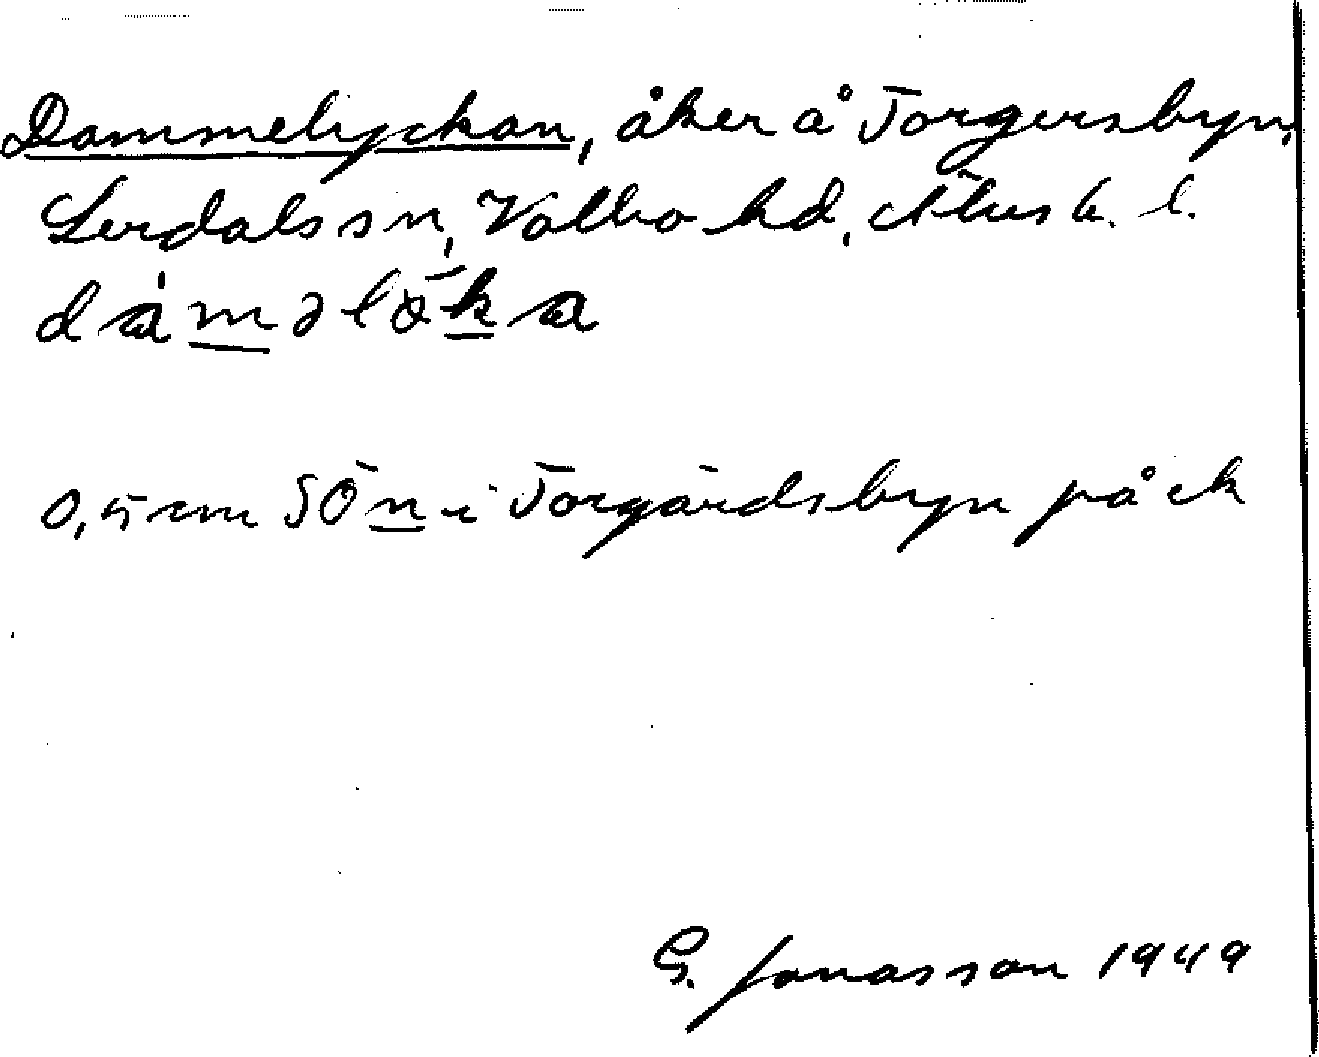 Dammelyckan, åker å Torgersbyn,
Lerdals sn, Valbo hd, Älvsb. l.
0,5 cm SÖ n i Torgärdsbyn på ek
G. Jonasson 1949